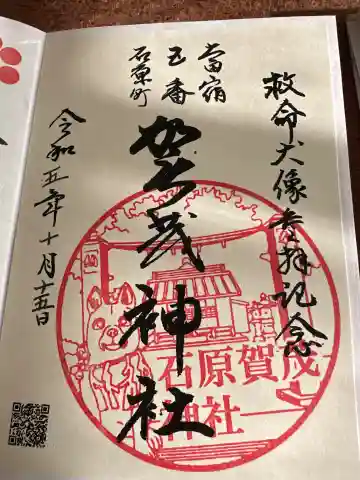 救命犬像参拝記念
当宿
五番
石原町
賀茂神社
令和五年十月十五日
石原賀茂
神社